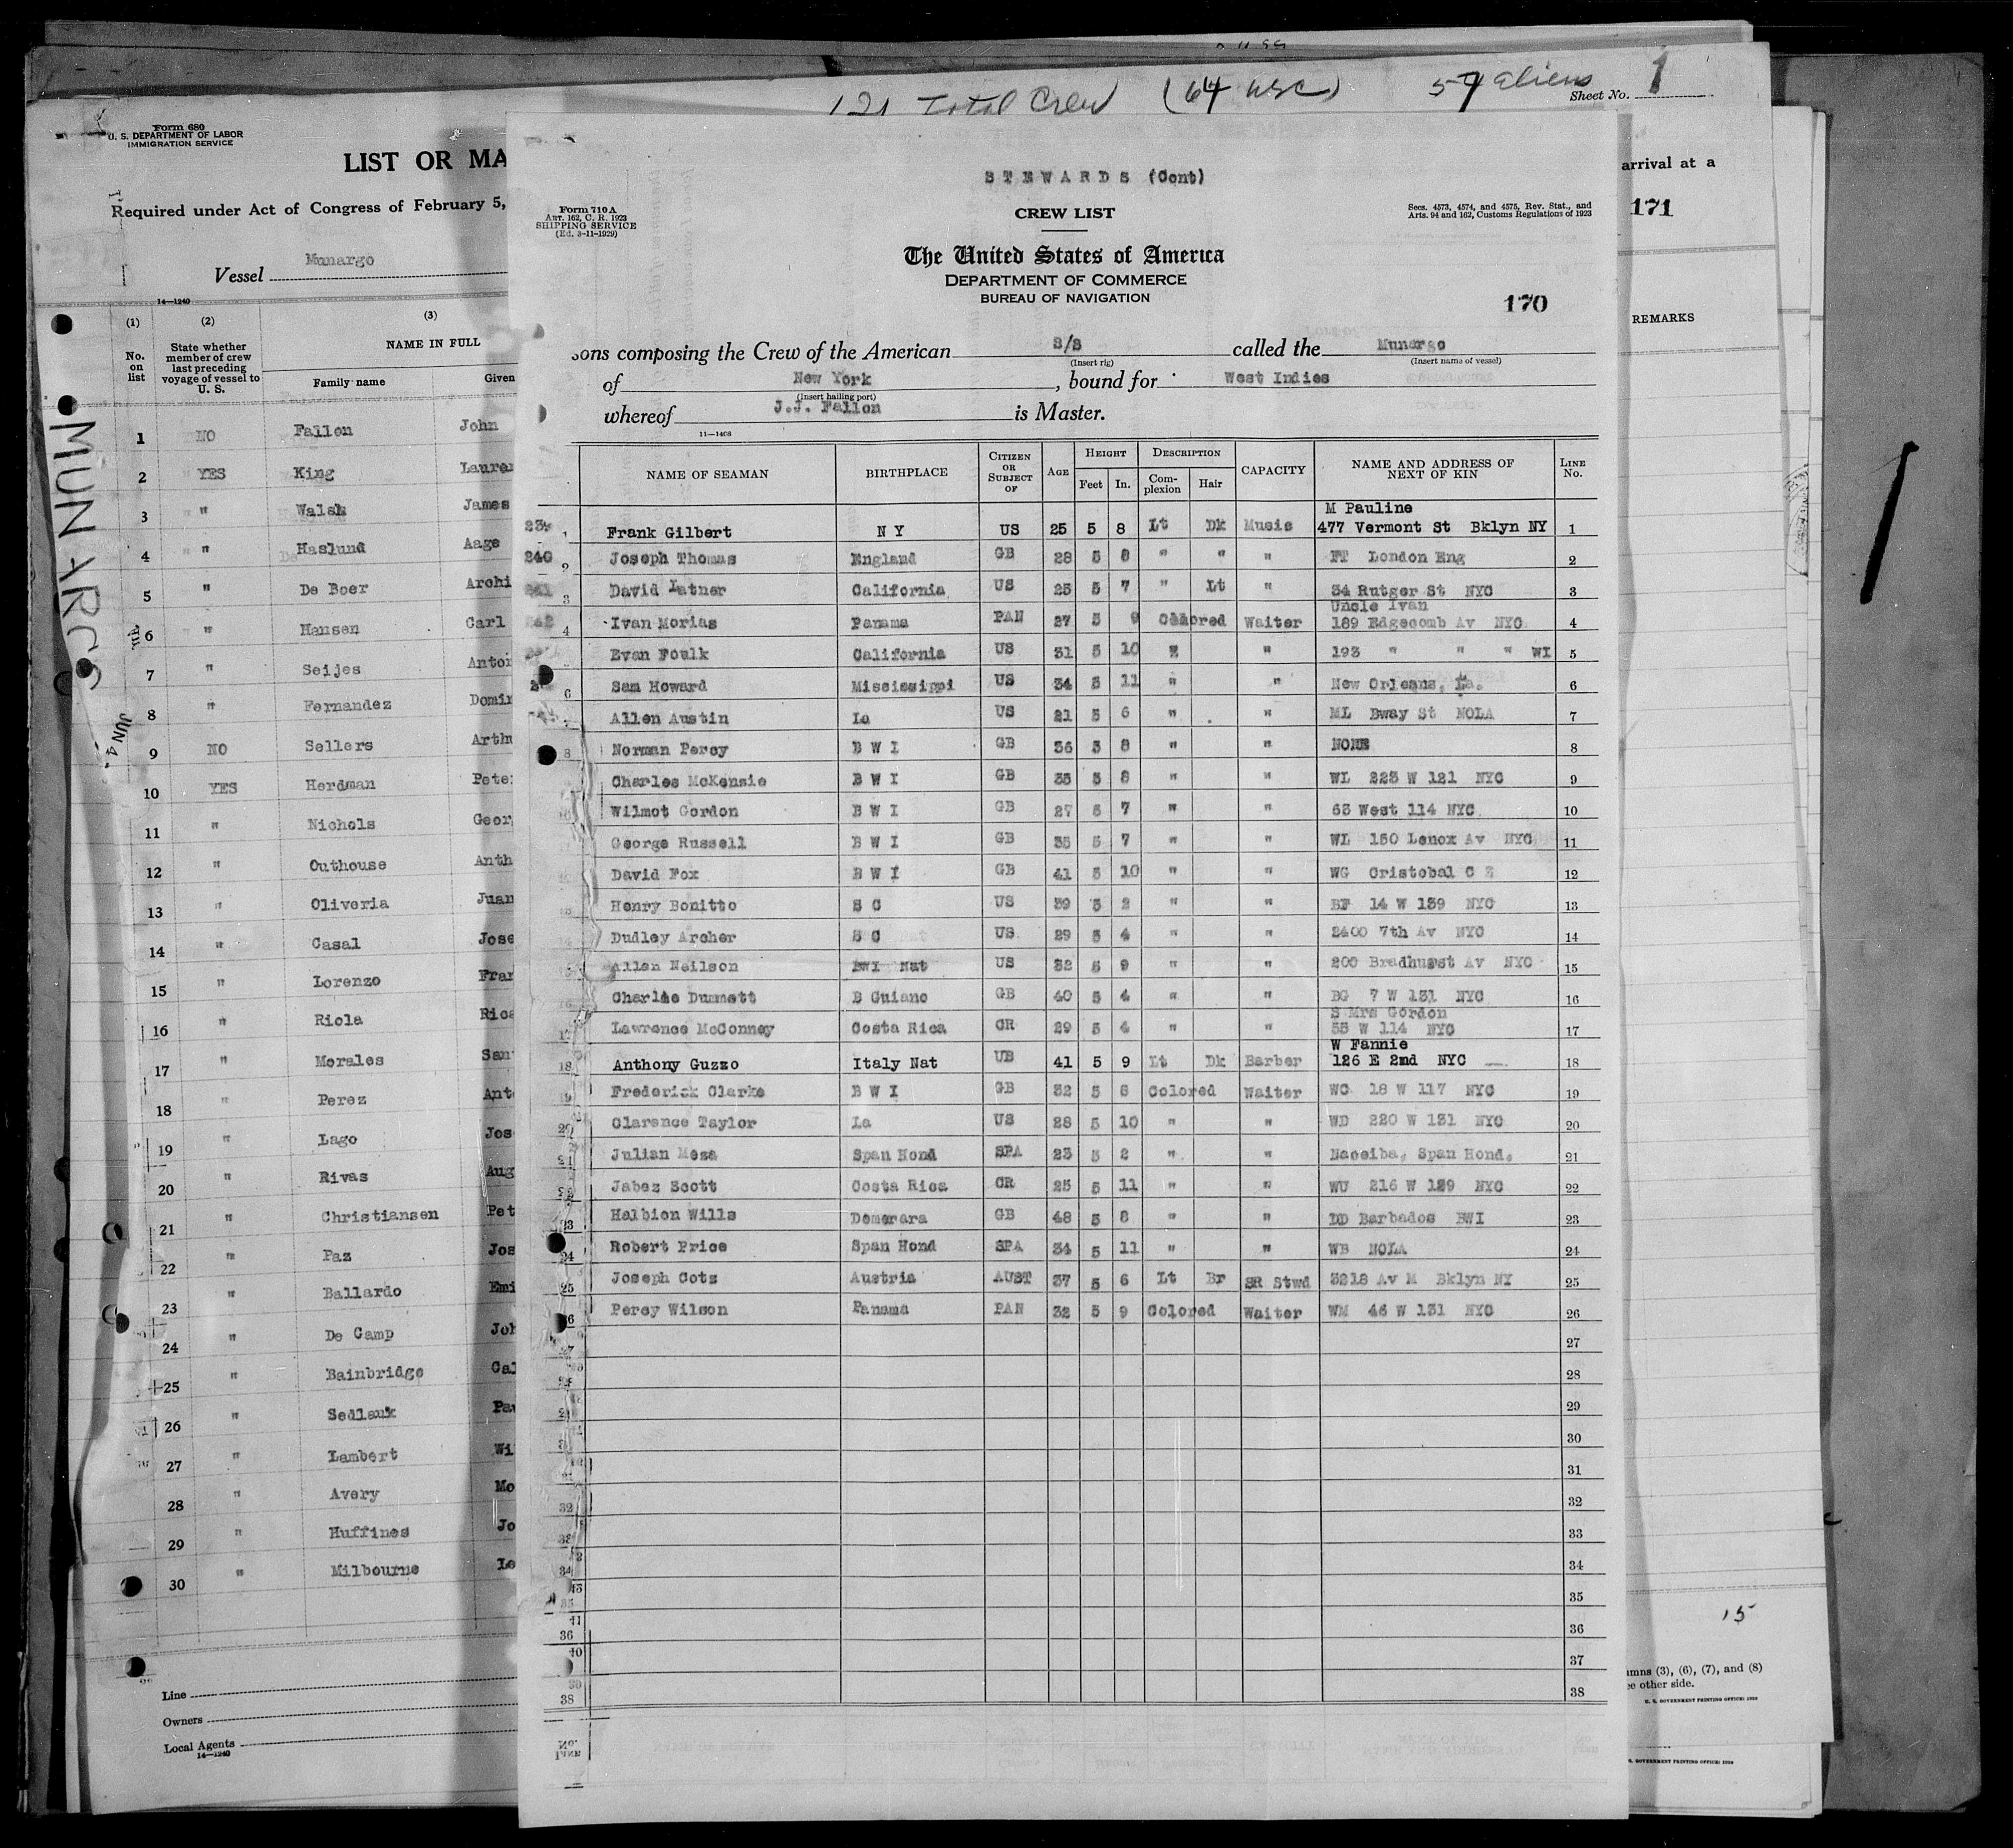 121 Total Crew (64 USC) 57 aliens
Sheet No. 1
Form 680
U. S. DEPARTMENT OF LABOR
IMMIGRATION SERVICE
LIST OR MA
Required under Act of Congress of February 5,
Vessel Munargo
14—1240
(1) (2) (3)
No. on list
State whether member of crew last preceding voyage of vessel to U. S.
NAME IN FULL
Family name Given
1 NO Fallon John
2 YES King Lauren
3 " Walsh James
4 " Haslund Aage
5 " De Boer Archi
6 " Hansen Carl
7 " Seijes Antoi
8 " Fernandez Domin
9 NO Sellers Arthu
10 YES Herdman Peter
11 " Nichols Georg
12 " Outhouse Anth
13 " Oliveria Juan
14 " Casal Jose
15 " Lorenzo Fran
16 " Riola Rica
17 " Morales San
18 " Perez Ant
19 " Lago Jos
20 " Rivas Aug
21 " Christiansen Pet
22 " Paz Jos
23 " Ballardo Emi
24 " De Camp Joh
25 " Bainbridge Gal
26 " Sedlauk Pa
27 " Lambert Wi
28 " Avery Mo
29 " Huffines Jo
30 " Milbourne Le
Line
Owners
Local Agents
14—1240
MUNARGO
JUN 4
STEWARDS (Cont)
Form 710 A
ART. 162, C. R. 1923
SHIPPING SERVICE
(Ed. 3-11-1929)
CREW LIST
Secs. 4573, 4574, and 4575, Rev. Stat., and
Arts. 94 and 162, Customs Regulations of 1923
The United States of America
DEPARTMENT OF COMMERCE
BUREAU OF NAVIGATION
170
sons composing the Crew of the American S/S called the Munargo
(Insert rig) (Insert name of vessel)
of New York, bound for West Indies
(Insert hailing port)
whereof J.J. Fallon is Master.
11—1408
NAME OF SEAMAN BIRTHPLACE CITIZEN OR SUBJECT OF AGE HEIGHT Feet In. DESCRIPTION Complexion Hair CAPACITY NAME AND ADDRESS OF NEXT OF KIN LINE No.
M Pauline
Frank Gilbert N Y US 25 5 8 Lt Dk Music 477 Vermont St Bklyn NY 1
240 2 Joseph Thomas England GB 28 5 8 " " " FT London Eng 2
3 David Latner California US 25 5 7 " Lt " 34 Rutger St NYC 3
Uncle Ivan
4 Ivan Morias Panama PAN 27 5 9 Colored Waiter 189 Edgecomb Av NYC 4
Evan Foulk California US 31 5 10 " " 193 " " " WI 5
6 Sam Howard Mississippi US 34 5 11 " " New Orleans, La. 6
Allen Austin La US 21 5 6 " " ML Bway St NOLA 7
8 Norman Percy B W I GB 36 5 8 " " NONE 8
Charles McKenzie B W I GB 35 5 8 " " WL 223 W 121 NYC 9
Wilmot Gordon B W I GB 27 5 7 " " 63 West 114 NYC 10
George Russell B W I GB 35 5 7 " " WL 150 Lenox Av NYC 11
David Fox B W I GB 41 5 10 " " WG Cristobal C Z 12
Henry Bonitto S C US 39 5 2 " " BF 14 W 139 NYC 13
Dudley Archer S C US 29 5 4 " " 2400 7th Av NYC 14
Allen Neilson BWI Nat US 32 5 9 " " 200 Bradhurst Av NYC 15
Charlie Dummett B Guiano GB 40 5 4 " " BG 7 W 131 NYC 16
S Mrs Gordon
Lawrence McConney Costa Rica CR 29 5 4 " " 55 W 114 NYC 17
W Fannie
18 Anthony Guzzo Italy Nat UB 41 5 9 Lt Dk Barber 126 E 2nd NYC 18
Frederick Clarke B W I GB 32 5 8 Colored Waiter WC 18 W 117 NYC 19
20 Clarence Taylor La US 28 5 10 " " WD 220 W 131 NYC 20
21 Julian Mesa Span Hond SPA 23 5 2 " " Naceiba, Span Hond. 21
Jabez Scott Costa Rica CR 25 5 11 " " WU 216 W 129 NYC 22
23 Halbion Wills Demerara GB 48 5 8 " " DD Barbados BWI 23
24 Robert Price Span Hond SPA 34 5 11 " " WB NOLA 24
25 Joseph Cotz Austria AUST 37 5 6 Lt Br SR Stwd 3218 Av M Bklyn NY 25
Percy Wilson Panama PAN 32 5 9 Colored Waiter WM 46 W 131 NYC 26
27
28
29
30
31
32 32
33
34 34
35
36 36
37
38 38
arrival at a
171
REMARKS
15
umns (3), (6), (7), and (8)
ee other side.
U. S. GOVERNMENT PRINTING OFFICE: 1929